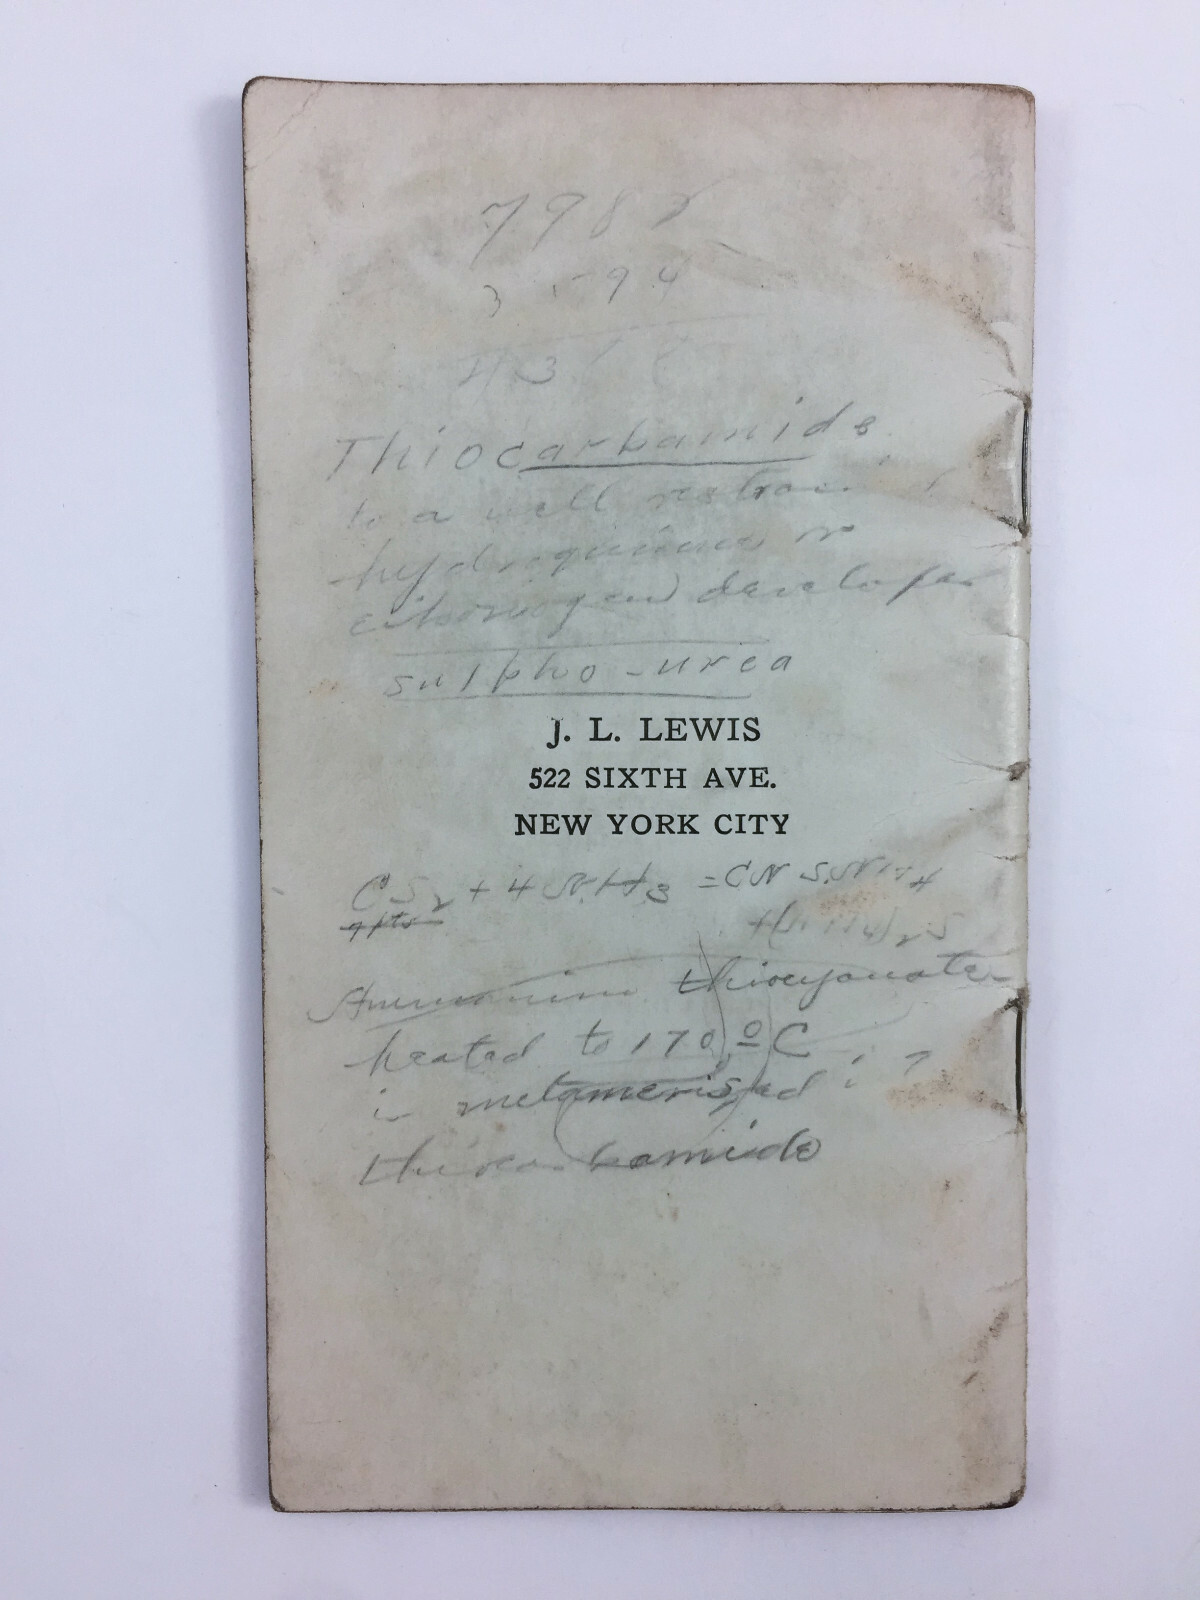 7982
94
43
Thiocarbamide
to a well
hydroquinone or
eikonogen developer
sulpho-urea
J. L. LEWIS
522 SIXTH AVE.
NEW YORK CITY
CS2 + 4 NH3 = CN S.NH4
+(NH4)2S
Ammonium thiocyanate
heated to 170 º C
is metamerised i
thiocarbamide